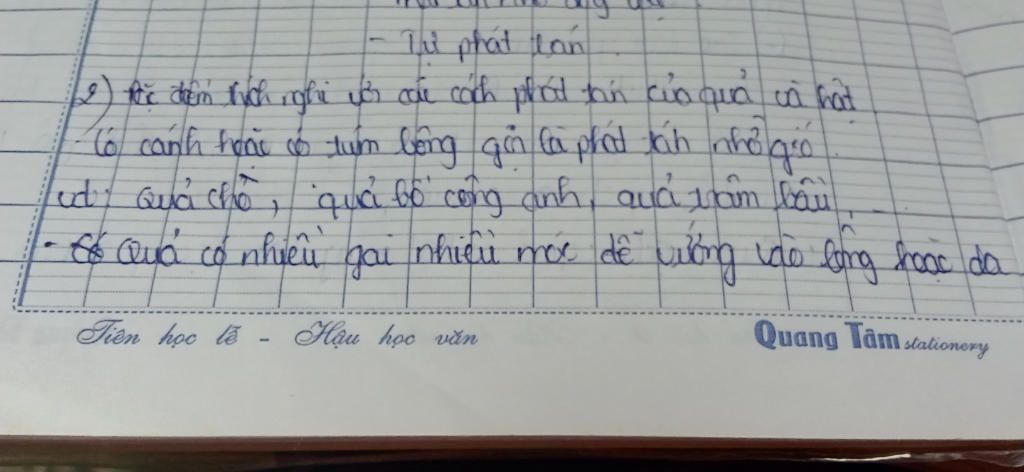 - Tự phát tán
2) đặc điểm thích nghi với các cách phát tán của quả và hạt
- Có cánh hoặc có túm lông gọi là phát tán nhờ gió.
vd: quả chò, quả bồ công anh, quả trâm bầu,...
- Quả có nhiều gai nhiều móc dễ vướng vào lông hoặc da
Tiên học lễ - Hậu học văn
Quang Tâm stationery